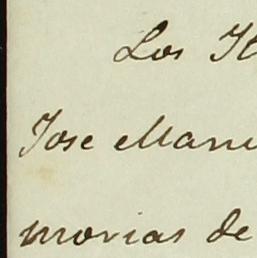 Los
Jose Manu
morias de